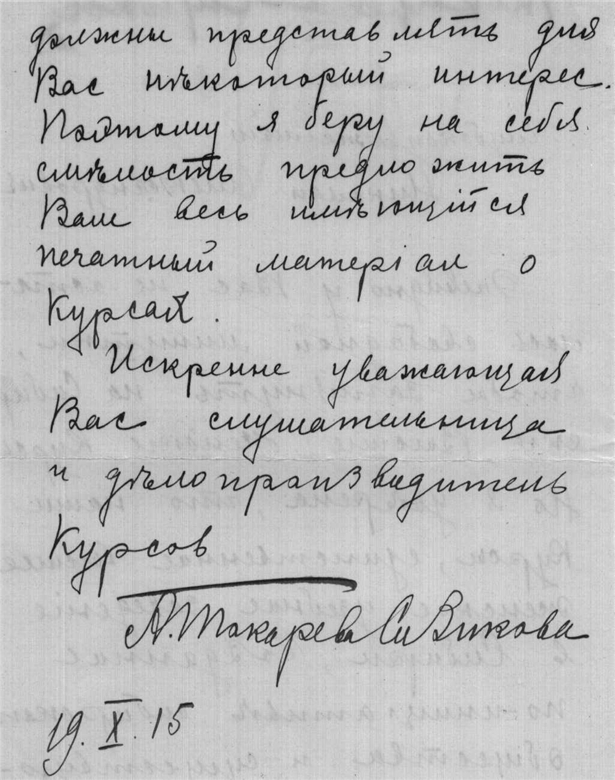 должны представлять для
Вас нѣкоторый интерес.
Поэтому я беру на себя
смѣлость предложить
Вам весь имѣющійся
печатный матеріал о
Курсах.
Искренне уважающая
Вас слушательница
и дѣлопроизводитель
Курсов
А. Токарева
19. X. 15